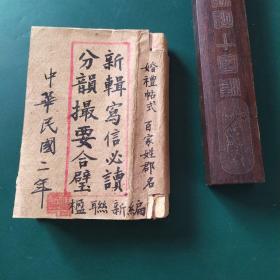 新輯寫信必讀
分韻撮要合璧
中華民國二年
楹聯新編
婚禮帖式 百家姓郡名